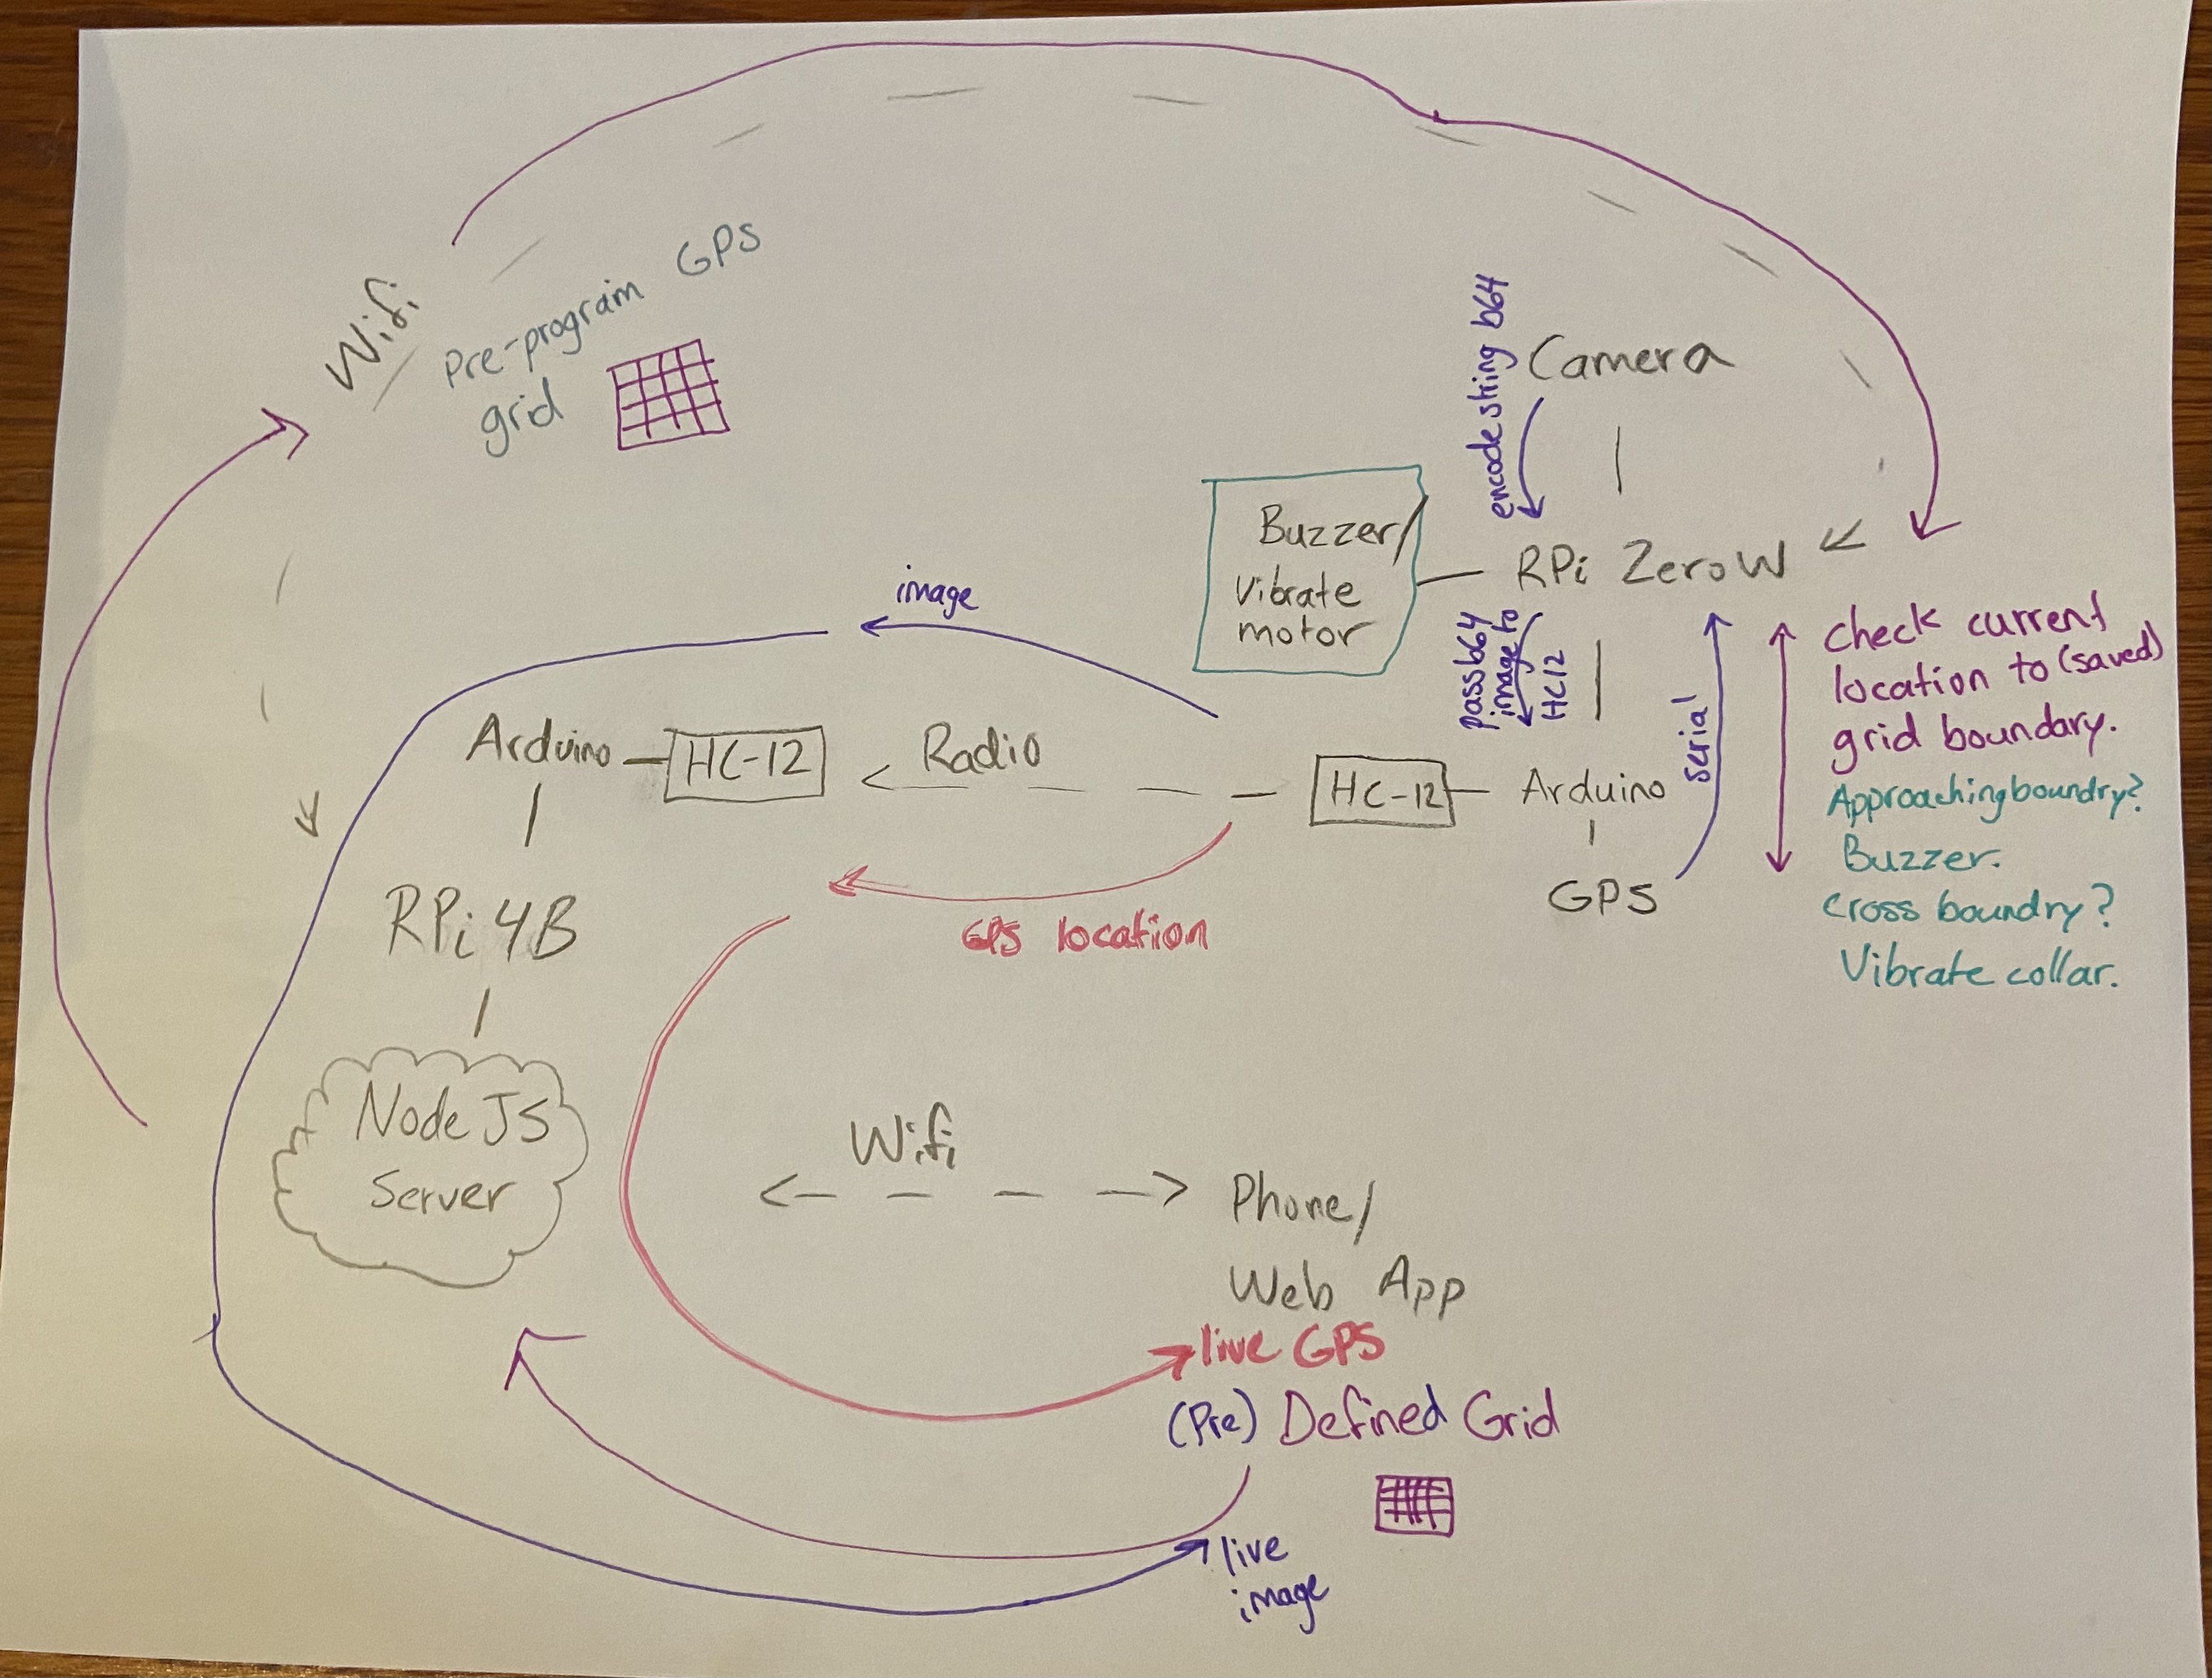 Wifi
Pre-program GPS
grid
encode string b64
Camera
Buzzer/
Vibrate
motor
RPi Zero W
image
pass b64
image to
HC12
serial
check current
location to (saved)
grid boundary.
Approaching boundry?
Buzzer.
cross boundry?
Vibrate collar.
Arduino
HC-12
Radio
HC-12
Arduino
GPS
GPS location
RPi 4B
Node JS
Server
Wifi
Phone/
Web App
live GPS
(Pre) Defined Grid
live
image